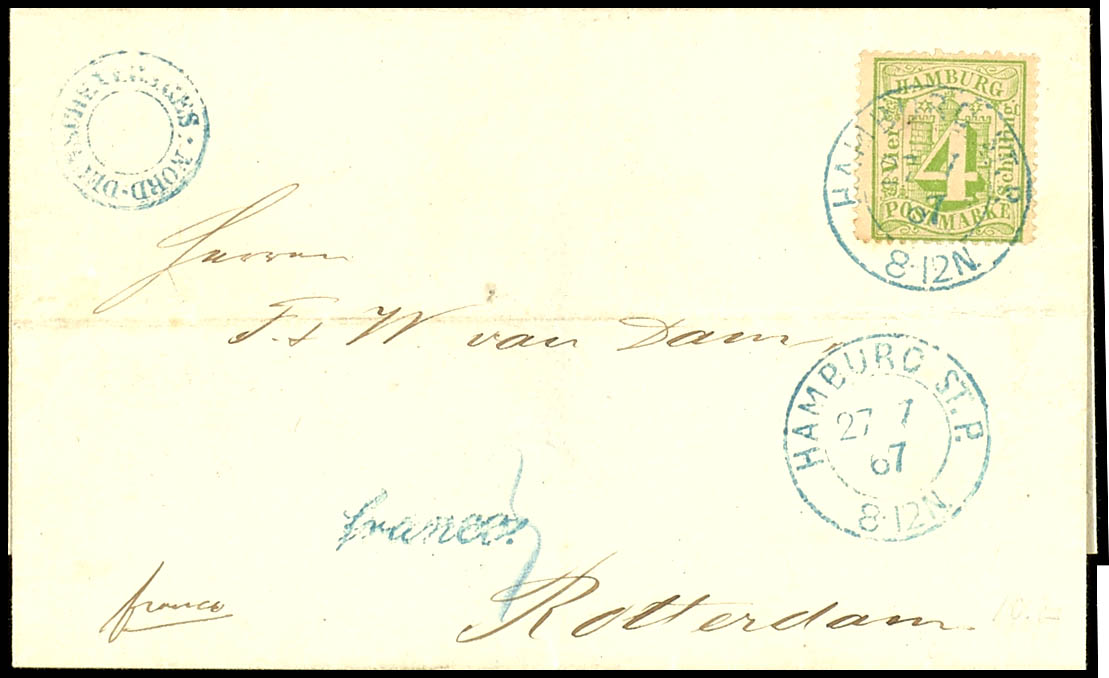 NORD-DEUTSCHE VERS.GES.
HAMBURG
Vier
4
Schilling
POSTMARKE
HAMBURG ST.P.
27 7
67
8-12N.
Herren
F. & W. van Dam,
HAMBURG ST.P.
27 7
67
8-12N.
franco.
franco
Rotterdam